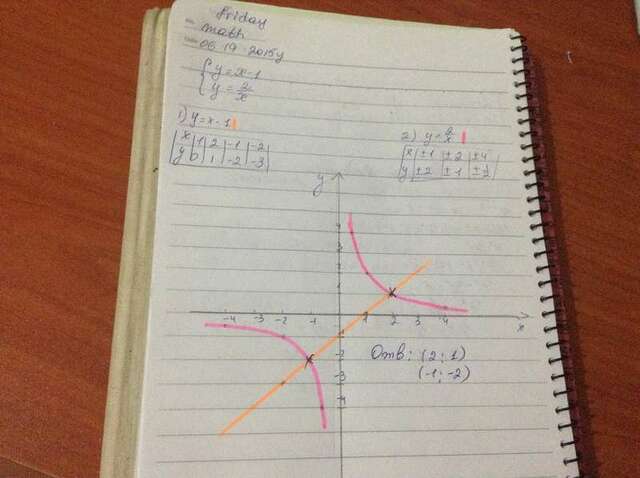 Friday
math
06.19.2015y
{ y = x-1
{ y = 2/x
1) y = x-1
x | 1 | 2 | -1 | -2
y | 0 | 1 | -2 | -3
2) y = 2/x
x | ±1 | ±2 | ±4
y | ±2 | ±1 | ±1/2
y
4
3
2
1
-4 -3 -2 -1 1 2 3 4 x
-2
-3
-4
Отв: (2; 1)
(-1; -2)